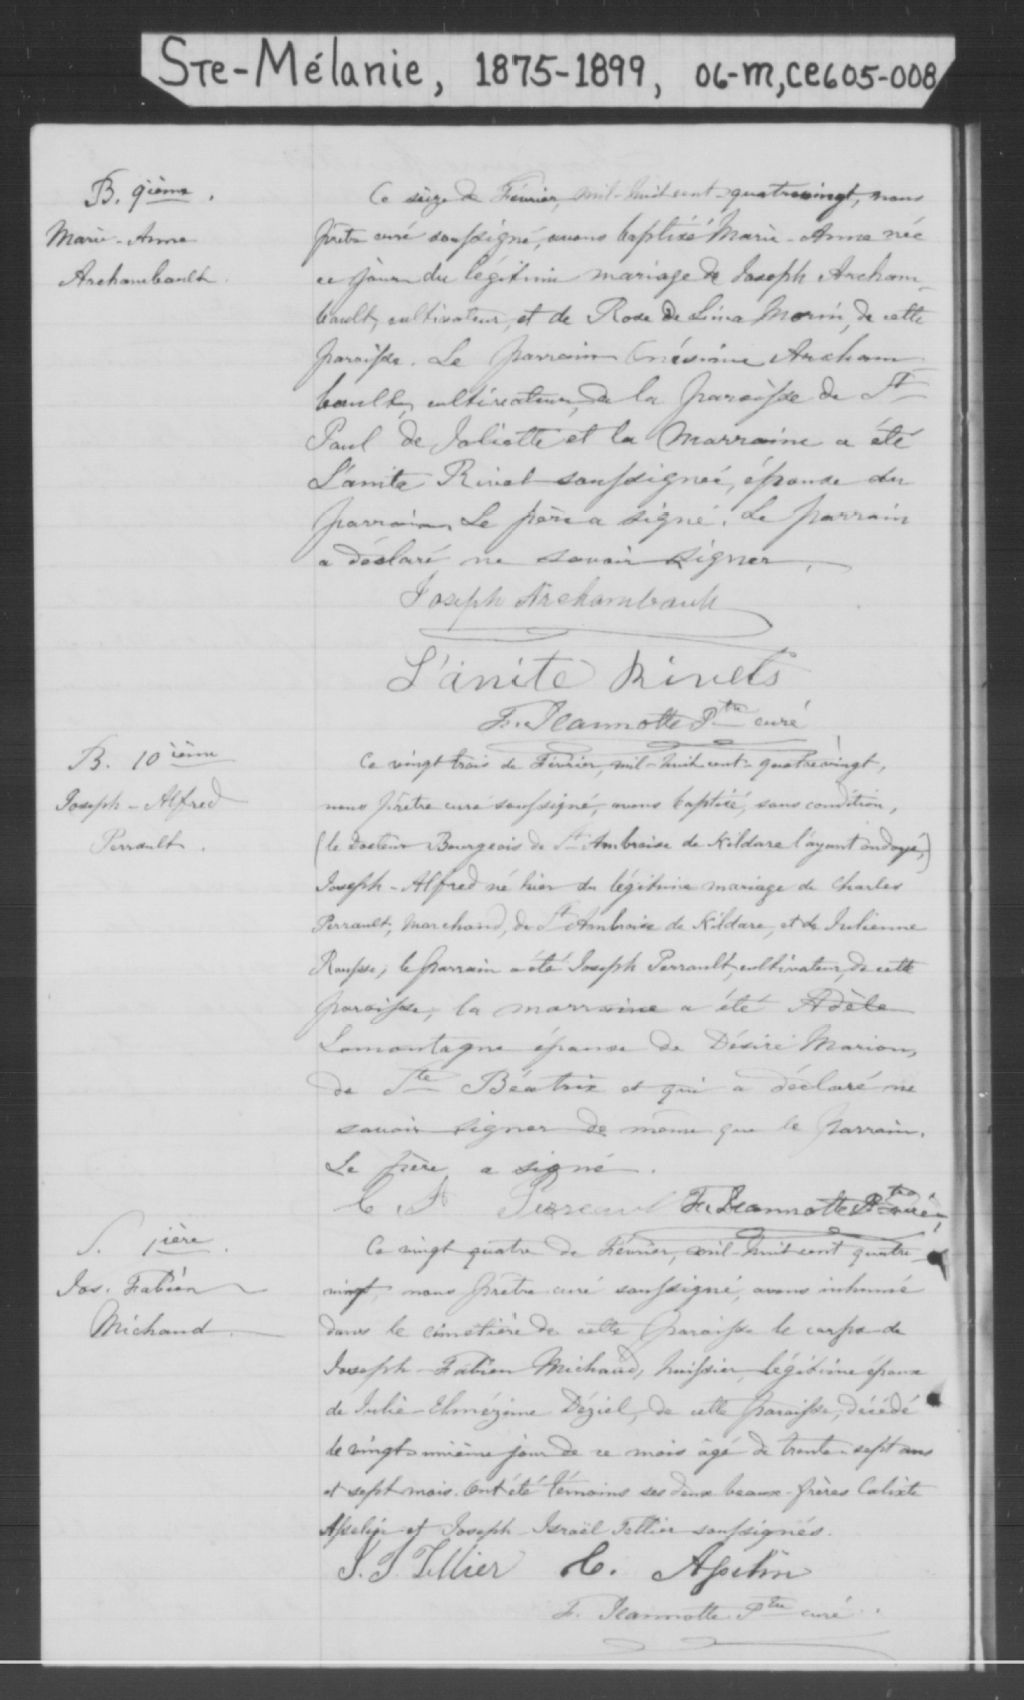 Ste-Mélanie, 1875-1899, 06-M,CE605-008
B. 9ième.
Marie-Anne
Archambault.
Ce seize de Février, mil-huit cent-quatrevingt, nous
prêtre curé soussigné, avons baptisé Marie-Anne née
ce jour du légitime mariage de Joseph Archam-
bault, cultivateur, et de Rose de Lima Morin, de cette
paroisse. Le parrain Onésime Archam
bault, cultivateur, de la paroisse de St
Paul de Joliette et la marraine a été
L'anite Rivet soussignée, épouse du
parrain. Le père a signé. Le parrain
a déclaré ne savoir signer.
Joseph Archambault
L'anite Rivets
F. Jeannotte Ptre curé
B. 10ième
Joseph-Alfred
Perrault.
Ce vingt trois de Février, mil-huit cent-quatrevingt,
nous prêtre curé soussigné, avons baptisé, sans condition,
(le Docteur Bourgeois de St Ambroise de Kildare l'ayant ondoyé,)
Joseph-Alfred né hier du légitime mariage de Charles
Perrault, marchand, de St Ambroise de Kildare, et de Julienne
; le parrain a été Joseph Perrault, cultivateur, de cette
paroisse, la marraine a été Adèle
Lamontagne épouse de Désiré Marion,
de Ste Béatrix et qui a déclaré ne
savoir signer de même que le parrain.
Le père a signé.
C. Perreault F. Jeannotte Ptre curé
S. 1ière.
Jos. Fabien
Michaud
Ce vingt quatre de Février, mil-huit cent quatre
vingt, nous prêtre curé soussigné, avons inhumé
dans le cimetière de cette paroisse le corps de
Joseph-Fabien Michaud, huissier, légitime époux
de Julie-Elmézime Déziel, de cette paroisse, décédé
le vingt-unième jour de ce mois âgé de trente-sept ans
et sept mois. Ont été témoins ses deux beaux-frères Calixte
Asselin et Joseph-Israël Tellier soussignés.
J. I. Tellier C. Asselin
F. Jeannotte Ptre curé.